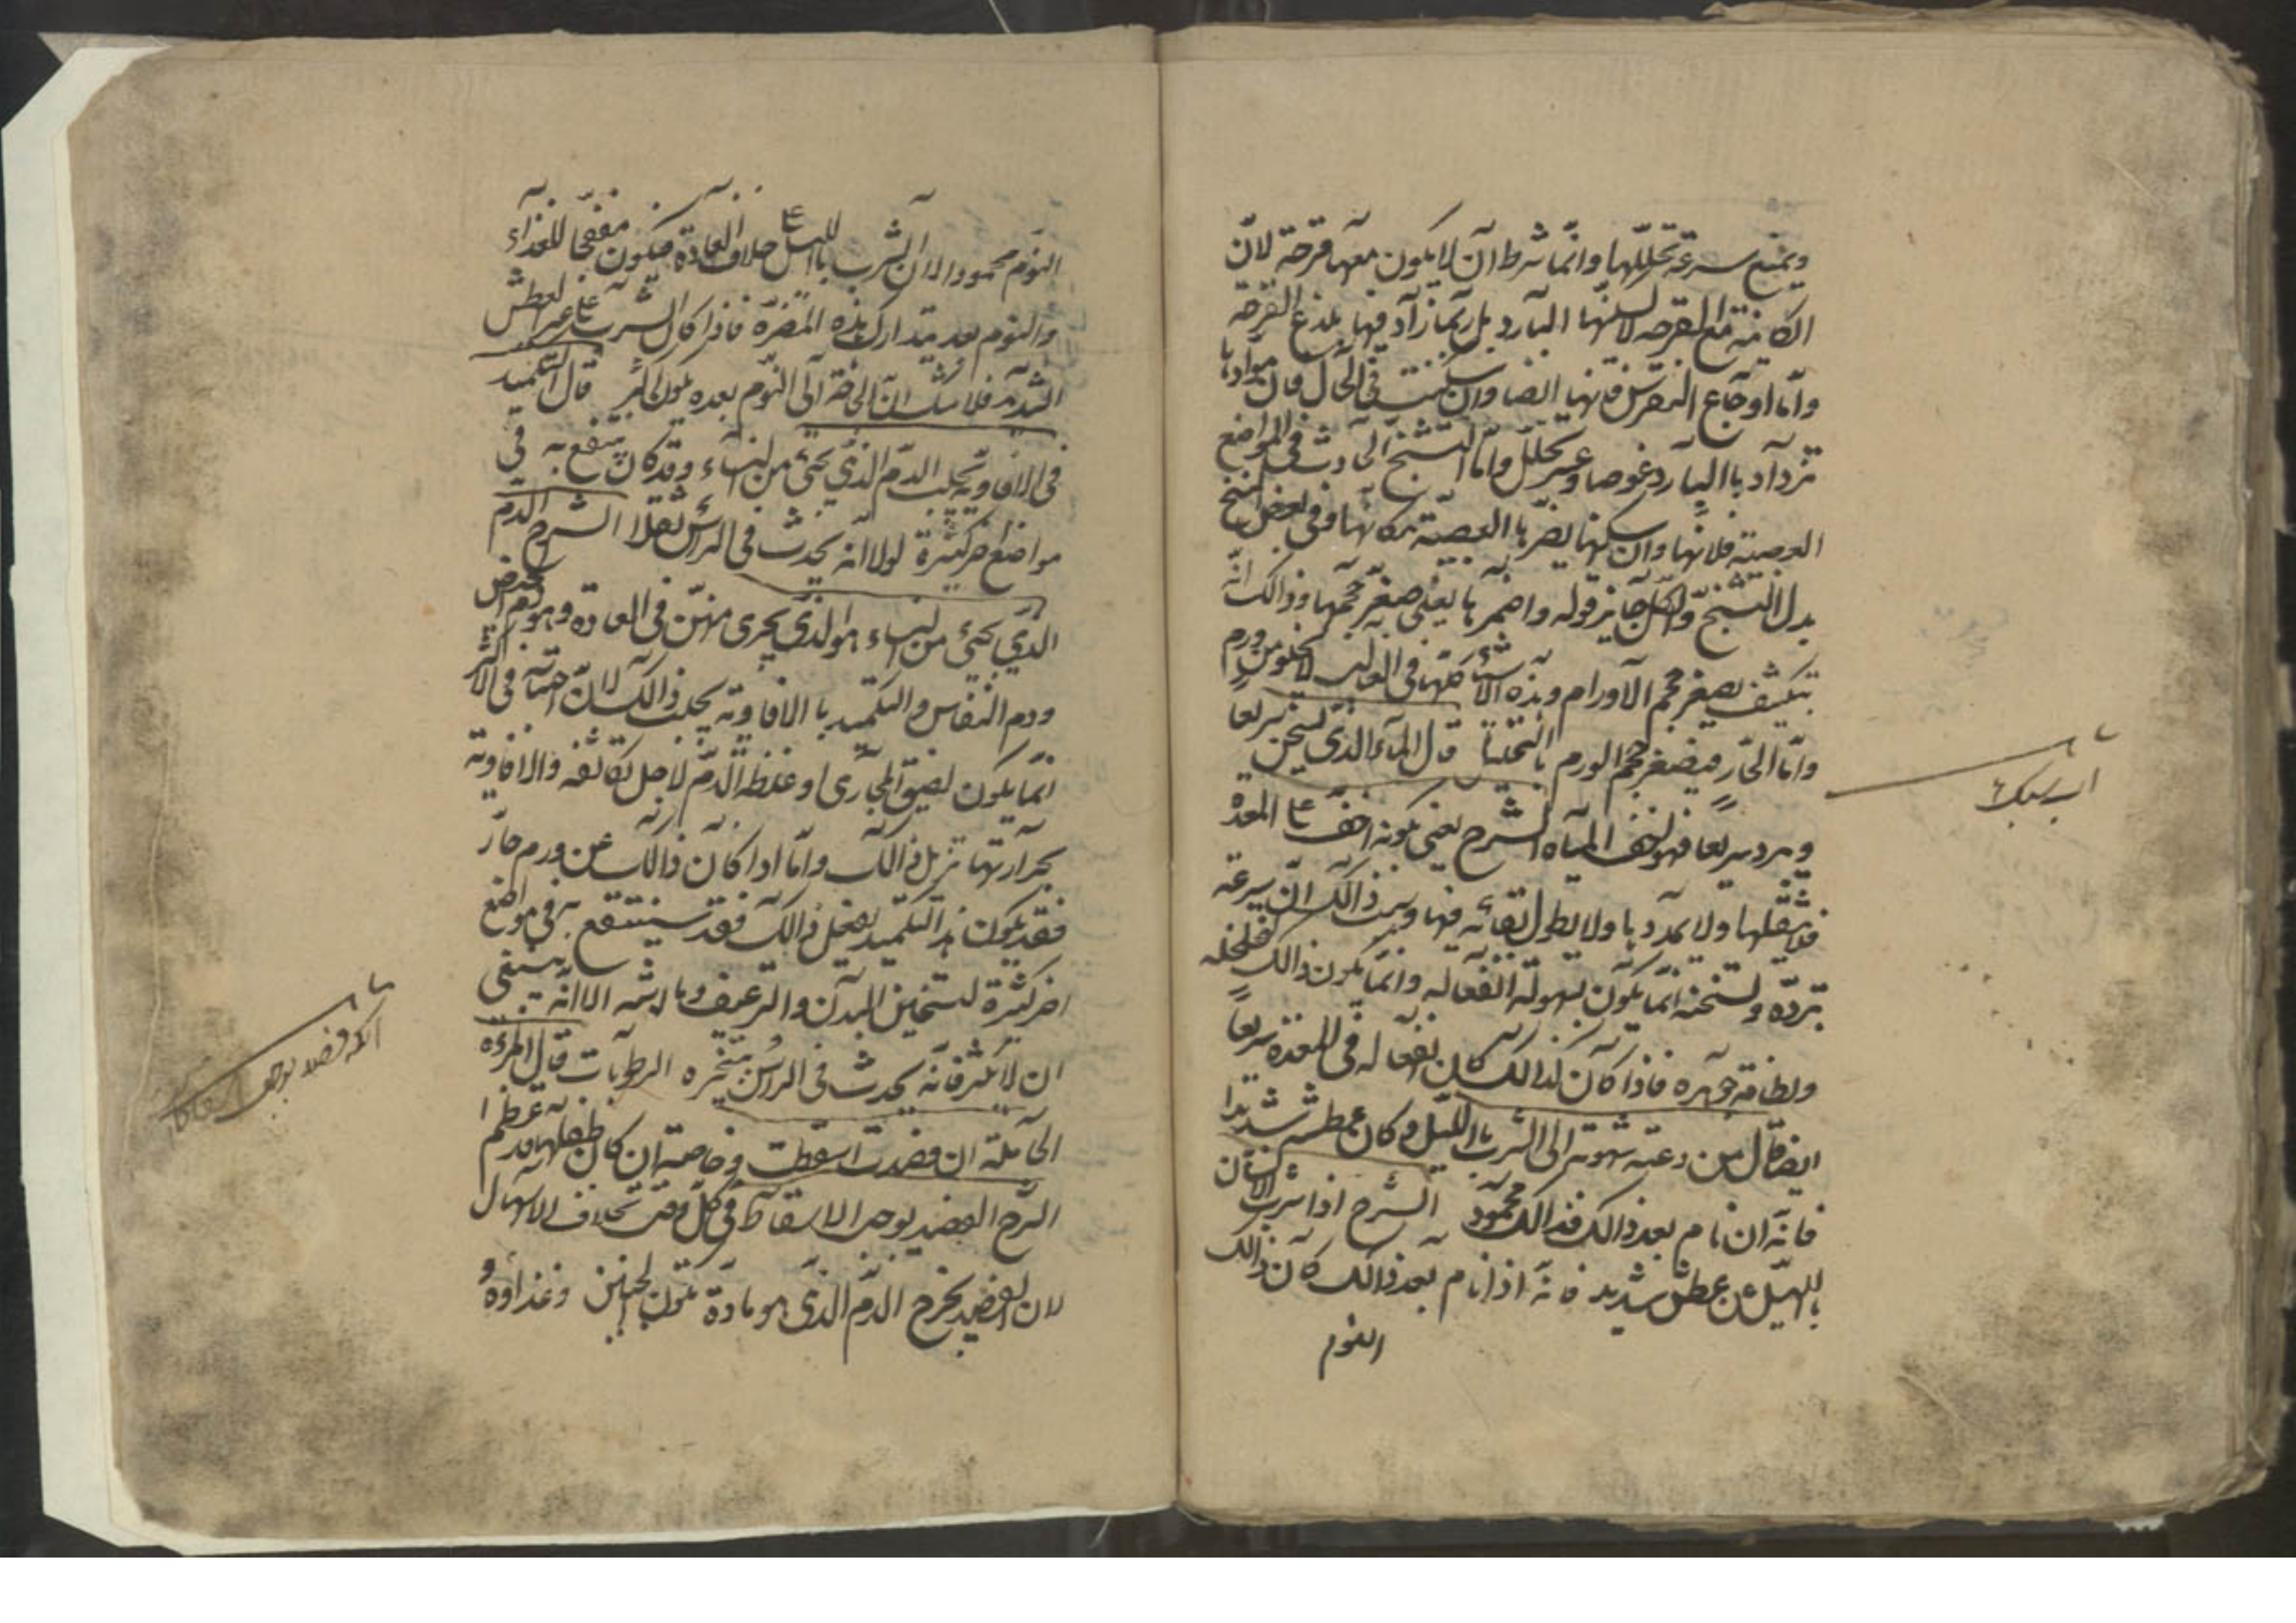 ويمنع سرعة تحللها وانما شرط ان لا يكون معها قرحة لان
الكاينة مع القرحه لا يسكنها البارد بل ربما زاد فيها بلذع القرحه
واما اوجاع النقرس فانها ايضا وان سكنت فى الحال فان موادها
تزداد باالبارد غوصا وعسر تحلل واما التشنج الحادث فى المواضع
العصبية فلانها وان سكنها يضر باالعصبة مكانها وفى بعض النسخ
بدل التشنج والكل جايز قوله واضمرها يعنى صغر حجمها وذالك انه
بتكثيف يصغر حجم الاورام وهذه الاشياء كلها فى الغالب لا تخلو من ورم
واما الحار فيصغر حجم الورم باالتحليل قال الماء الذى يسخن سريعا
ويبرد سريعا فهو اخف المياه الشرح يعنى بكونه اخف على المعدة
فلا يثقلها ولا يمددها ولا يطول بقائه فيها وسبب ذالك ان سرعة
تبرده وتسخنه انما يكون بسهولة انفعاله وانما يكون ذالك لتخلخله
ولطافة جوهره فاذا كان كذالك كان انفعاله فى المعدة سريعا
ايضا قال من دعته شهوته الى الشرب باالليل وكان عطشه شديدا
فانه ان نام بعد ذالك فذالك محمود الشرح اذا شرب الانسان
بالليل عن عطش شديد فانه اذا نام بعد ذالك كان ذالك
النوم
اب سبك
النوم محمودا لا ان الشرب باالليل على خلاف العادة فيكون مفججا للغذاء
والنوم بعده يتدارك هذه المضرة فاذا كان الشرب على غير العطش
الشديد فلا شك ان الحاجة الى النوم بعده يكون اكثر قال التكميد
فى الافاويه يجلب الدم الذى يجئ من النساء وقد كان ينتفع به فى
مواضع اخر كثيرة لولا انه يحدث فى الراس ثقلا الشرح الدم
الذى يجئ من النساء هو الذى يجرى منهن فى العادة وهو دم الحيض
ودم النفاس والتكميد باالافاويه يجلب ذالك لان احتباسه فى الاكثر
انما يكون لضيق المجارى او غلظ الدم لاجل تكاثفه والافاويه
بحرارتها تزيل ذالك واما اذا كان ذالك عن ورم حار
فقد يكون هذا التكميد ذالك فقد ينتفع به فى مواضع
اخر كثيرة لتسخين البدن والترعيف وما اشبه الا انه ينبغى
ان لا يكثر فانه يحدث فى الراس بتبخره الرطوبات قال المرءة
الحاملة ان فصدت اسقطت وخاصة ان كان طفلها قد عظم
الشرح الفصد يوجب الاسقاط فى كل وقت بخلاف الاسهال
لان الفصد يخرج الدم الذى هو مادة تكون الجنين وغذاؤه و